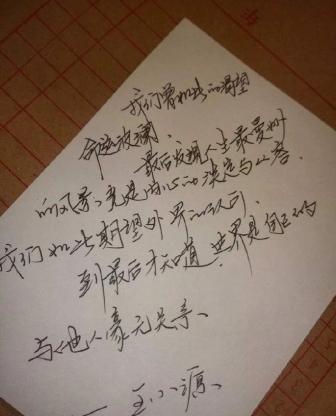 我们曾如此的渴望
命运波澜、
最后发现人生最曼妙
的风景、竟是内心的淡定与从容。
我们如此期望外界的认可、
到最后才知道、世界是自己的
与他人毫无关系、